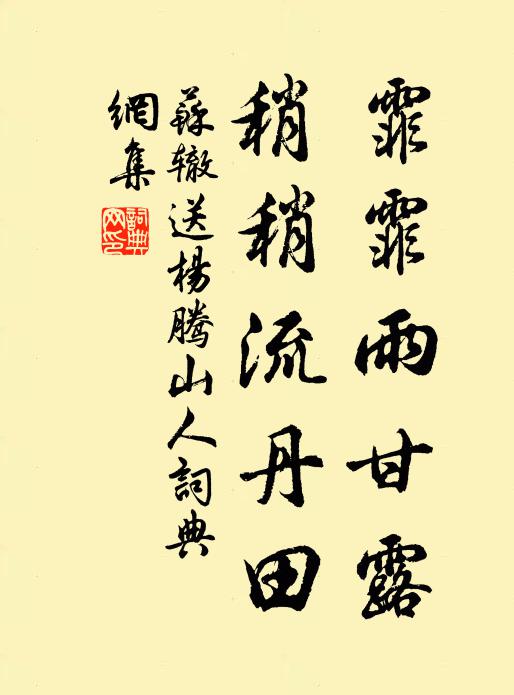 霏霏雨甘露
稍稍流丹田
蘇辙送楊騰山人詞典
網集
詞典網印